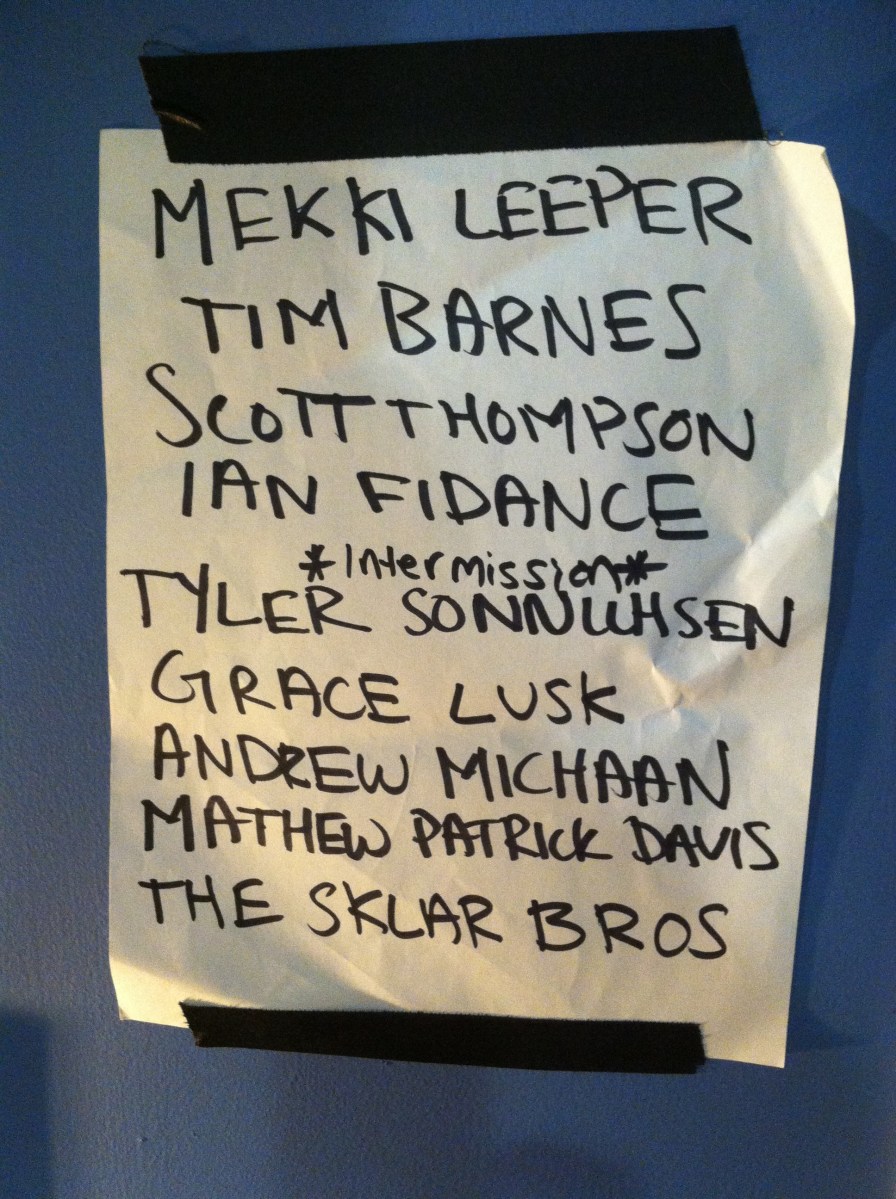 MEKKI LEEPER
TIM BARNES
SCOTT THOMPSON
IAN FIDANCE
*Intermission*
TYLER SONNICHSEN
GRACE LUSK
ANDREW MICHAAN
MATHEW PATRICK DAVIS
THE SKLAR BROS